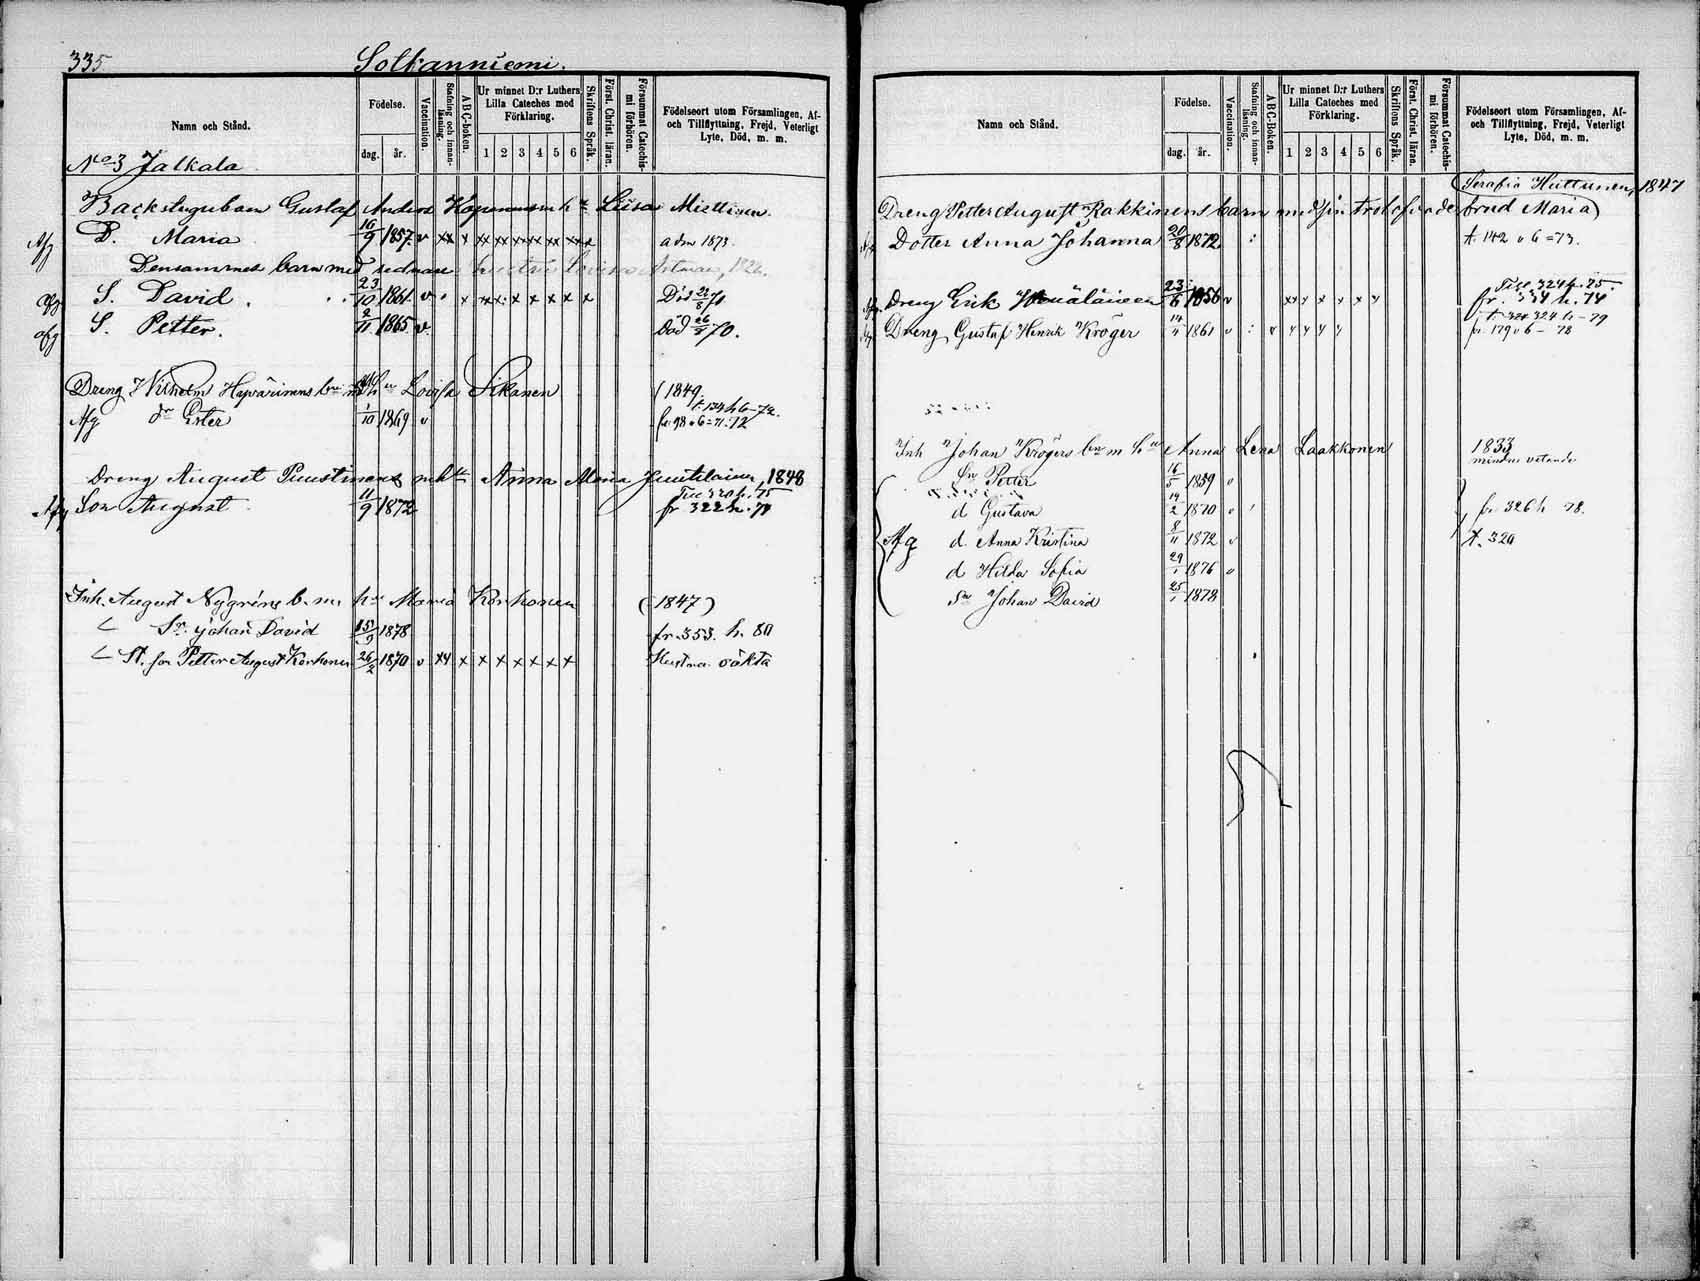 335
Solkanniemi.
Namn och Stånd.
Födelse.
dag. år.
Vaccination.
Stafning och innanläsning.
ABC-boken.
Ur minnet D:r Luthers Lilla Cateches med Förklaring.
1 2 3 4 5 6
Skriftens Språk.
Först. Christ. läran.
Försummat Catechismi förhören.
Födelseort utom Församlingen, Af- och Tillflyttning, Frejd, Veterligt Lyte, Död, m. m.
No 3 Jalkala
Backstugubarn Gustaf Anders h:u Liisa Miettinen.
Afg D. Maria 16/9 1857 v xx x xx xx xx xx xx a dm 1873.
Densammes barn med sednare hustru
Afg S. David 23/10 1861 v x xx x x x x x Död 21/8 71
Afg S. Petter. 2/11 1865 v. Död 70.
Dreng Wilhelm Hyvärinens Lovisa Sikanen (1849
Afg dr Ester 1/10 1869 v
Dreng August Puustinens m h:u Anna Maria Juutilainen, 1848
Till 320 h. 75
Afg Son August 11/9 1872 fr 322 h. 74
Inh. August Nygréns b. m h:u Maria Korhonen (1847)
Sn. Johan David 15/9 1878 fr. 353. h. 80
St. son Petter August Korhonen 26/2 1870 v xx x x x x x x x Hustrus oäkta
Namn och Stånd.
Födelse.
dag. år.
Vaccination.
Stafning och innanläsning.
ABC-boken.
Ur minnet D:r Luthers Lilla Cateches med Förklaring.
1 2 3 4 5 6
Skriftens Språk.
Först. Christ. läran.
Försummat Catechismi förhören.
Födelseort utom Församlingen, Af- och Tillflyttning, Frejd, Veterligt Lyte, Död, m. m.
(Serafia Huttunen, 1847
Dreng Petter August Rakkinens barn med sin trolofvade brud Maria)
Dotter Anna Johanna 20/8 1872 t. 142 v 6 = 73.
Till 324 h. 75.
Afg. Dreng Erik 23/6 1856 v xx x x x x x fr. 334 h. 74
t. 324 h - 79
Dreng Gustaf Henrik Kröger 14/11 1861 v : v x x x x fr. 179 v 6 - 78
Inh Johan Krögers b:n m h:u Anna Lena Laakkonen 1833
mindre vetande
Sn Petter 16/5 1859 v
d Gustava 14/2 1870 v fr. 326 h 78.
Afg d. Anna Kristina 8/11 1872 v t. 320
d Hilda Sofia 29/1 1876 v
Sn Johan David 25/1 1878